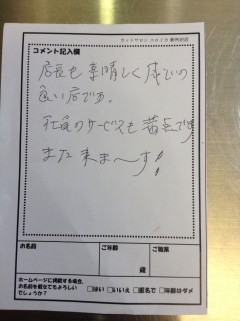 カットサロン
コメント記入欄
店長も素晴しく感じの
良い店です。
社員のサービスも満点です
また来ま〜す!
お名前 ご年齢 ご職業
歳
ホームページに掲載する場合、
お名前を載なてもよろしい
でしょうか?
□はい □いいえ □匿名で □年齢はダメ